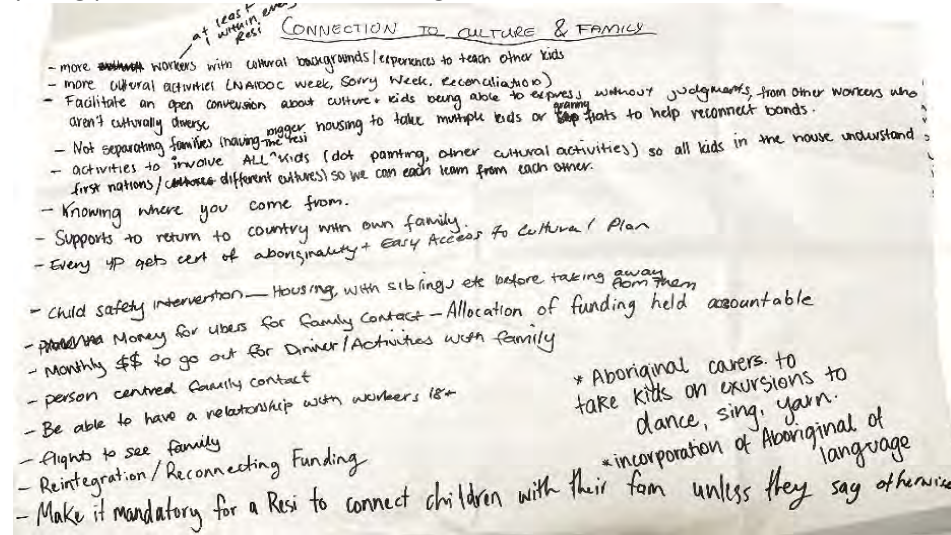 at least
1 within every
Resi
CONNECTION TO CULTURE & FAMILY
- more workers with cultural backgrounds/experiences to teach other kids
- more cultural activities (NAIDOC week, Sorry Week, Reconciliation)
- Facilitate an open conversion about culture + kids being able to express without judgments, from other workers who
aren't culturally diverse
- Not separating families (having bigger housing to take multiple kids or granny flats to help reconnect bonds.
- activities to involve ALL kids in the resi (dot painting, other cultural activities) so all kids in the house understand
first nations/different cultures) so we can each learn from each other.
- Knowing where you come from.
- Supports to return to country with own family.
- Every YP gets cert of aboriginality + Easy Access to Cultural Plan
- Child safety intervention — Housing, with siblings etc before taking away from them
- Money for ubers for family contact - Allocation of funding held accountable
- Monthly $$ to go out for Dinner/Activities with family
- person centred family contact
- Be able to have a relationship with workers 18+
- flights to see family
- Reintegration/Reconnecting Funding
- Make it mandatory for a Resi to connect children with their fam unless they say otherwise
* Aboriginal carers. to
take kids on exursions to
dance, sing, yarn.
* incorporation of Aboriginal of
language